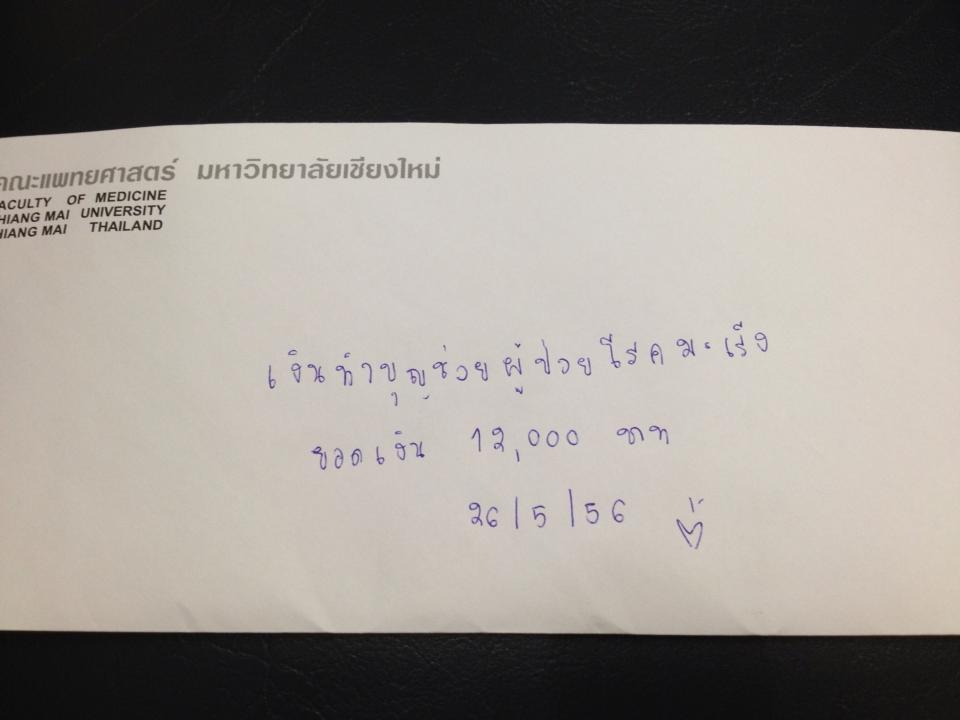 คณะแพทยศาสตร์ มหาวิทยาลัยเชียงใหม่
ACULTY OF MEDICINE
HIANG MAI UNIVERSITY
HIANG MAI THAILAND
เงินทำบุญช่วยผู้ป่วยโรคมะเร็ง
ยอดเงิน 12,000 บาท
26/5/56